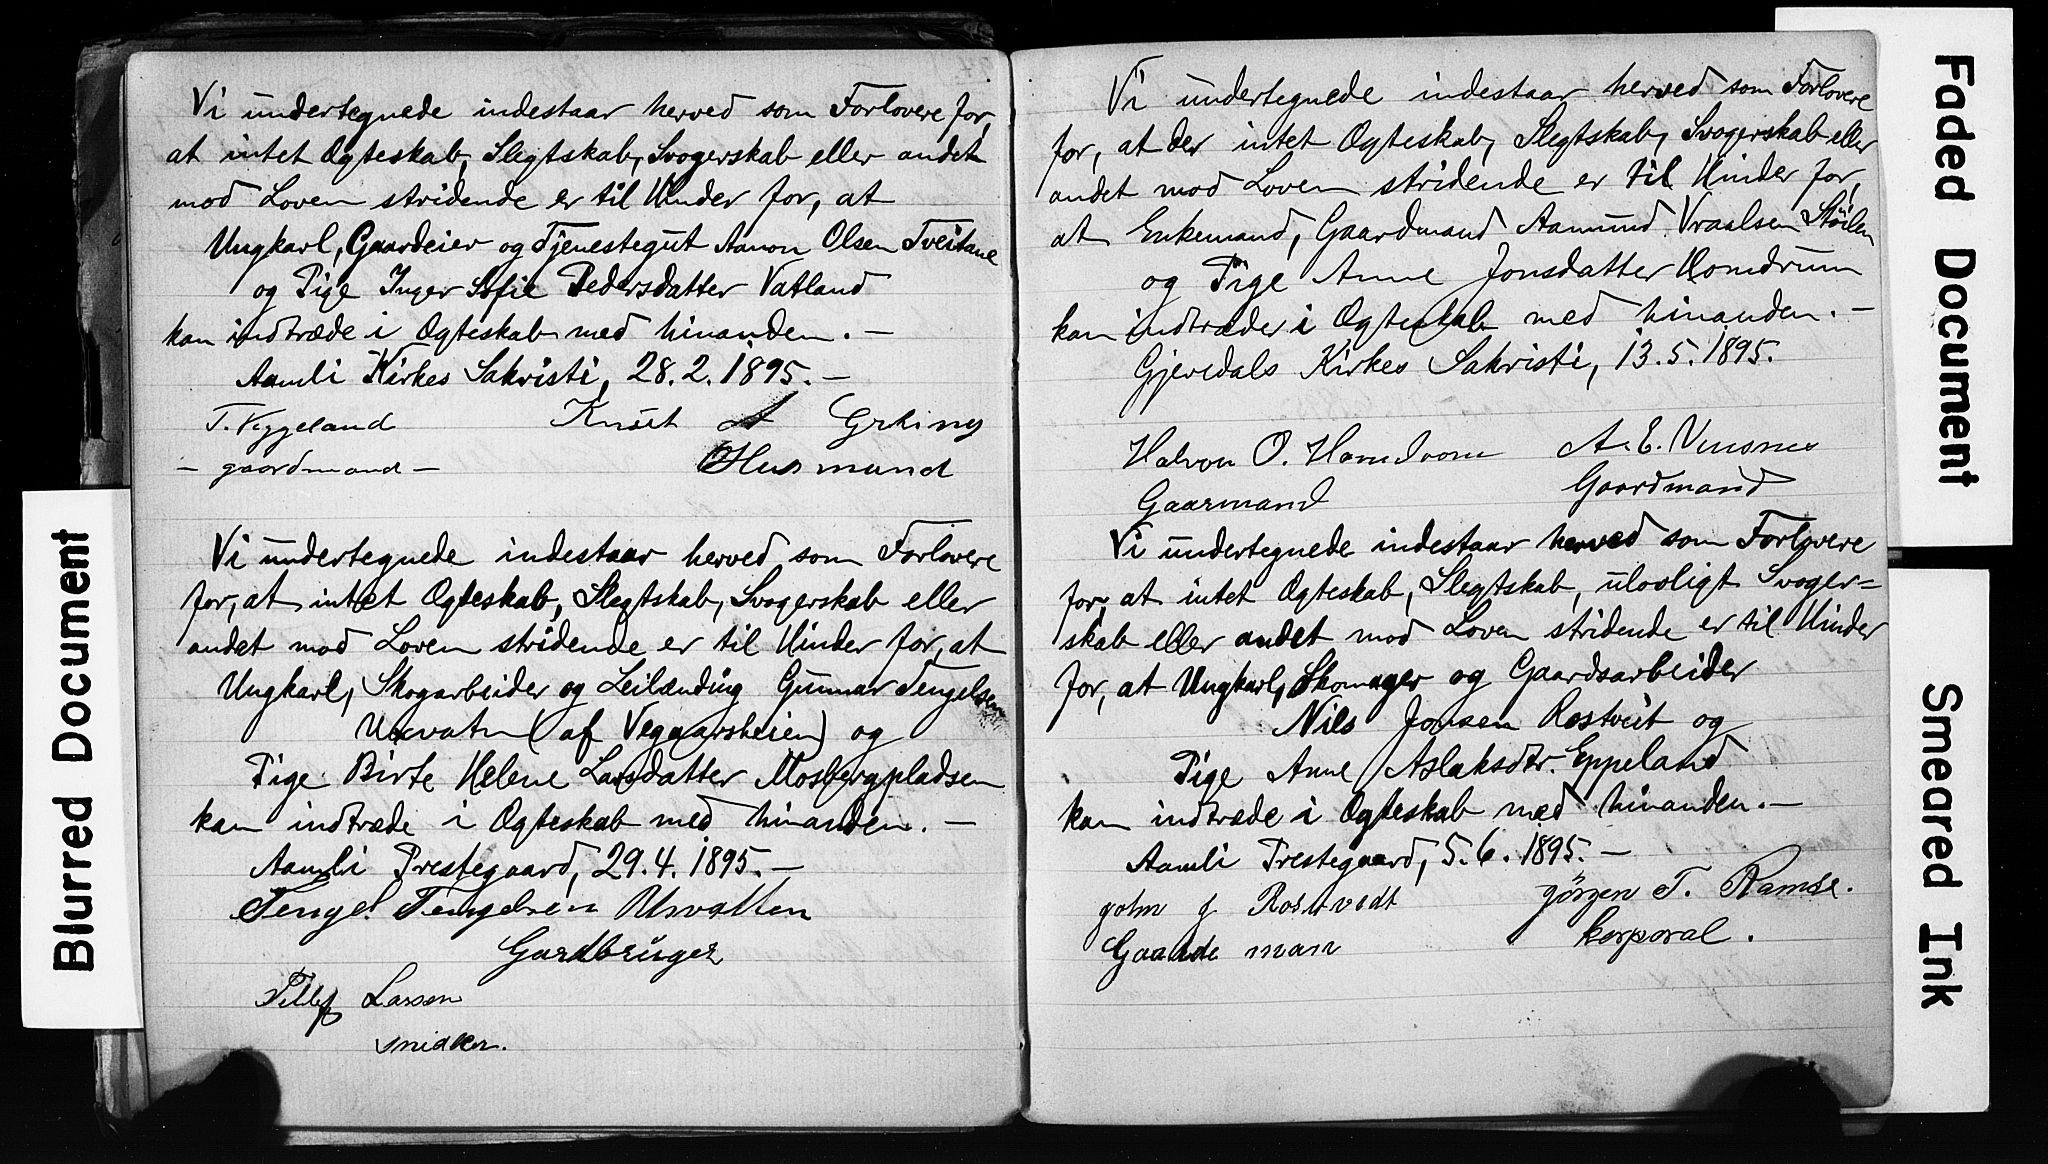 Vi undertegnede indestaar herved som Forlovere for,
at intet Ogteskab, Slegtskab, Svogerskab eller andet
mod Loven stridende er til Hinder for, at
Ungkarl, Gaardeier og Tjenestegut Aanon Olsen Tveitane
og Pige Inger Sofie Pedersdatter Vatland
kan indtræde i Ogteskab med hinanden. —
Aamli Kirkes Sakristi, 28.2.1895. —
T. Viggeland Knut A
— gaardmand — Husmand
Vi undertegnede indestaar herved som Forlovere
for, at intet Ogteskab, Slegtskab, Svogerskab eller
andet mod Loven stridende er til Hinder for, at
Ungkarl, Skogarbeider og Leilænding Gunnar Tengelsen
(af Vegaarsheien) og
Pige Birte Helene Larsdatter Mosbergpladsen
kan indtræde i Ogteskab med hinanden. —
Aamli Prestegaard, 29.4.1895. —
Tengel Tengelsen Usvatten
Gardbruger
Tellef Larsen
snidker.
Vi undertegnede indestaar herved som Forlovere
for, at der intet Ogteskab, Slegtskab, Svogerskab eller
andet mod Loven stridende er til Hinder for,
at Enkemand, Gaardmand Aamund Vraalsen Støilen
og Pige Anne Jonsdatter Homdrum
kan indtræde i Ogteskab med hinanden. —
Gjevedals Kirkes Sakristi, 13.5.1895.
Halvor O. Homdrom A. E. Vensnes
Gaarmand Gaardmand
Vi undertegnede indestaar herved som Forlovere
for, at intet Ogteskab, Slegtskab, ulovligt Svoger=
skab eller andet mod Loven stridende er til Hinder
for, at Ungkarl, Skomager og Gaardsarbeider
Nils Jonsen Rostveit og
Pige Anne Aslaksdtr. Eppeland
kan indtræde i Ogteskab med hinanden. —
Aamli Prestegaard, 5.6.1895. —
john j Rosvedt Jörgen T. Ramse.
Gaarde man korporal.
Blurred Document
Faded Document
Smeared Ink